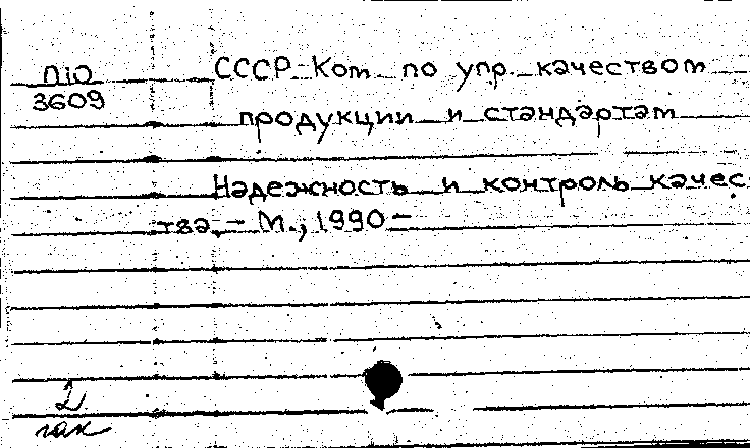 П10
3609
СССР Ком. по упр. качеством
продукции и стандартам
Надежность и контроль качес
тва. – М., 1990 –
2